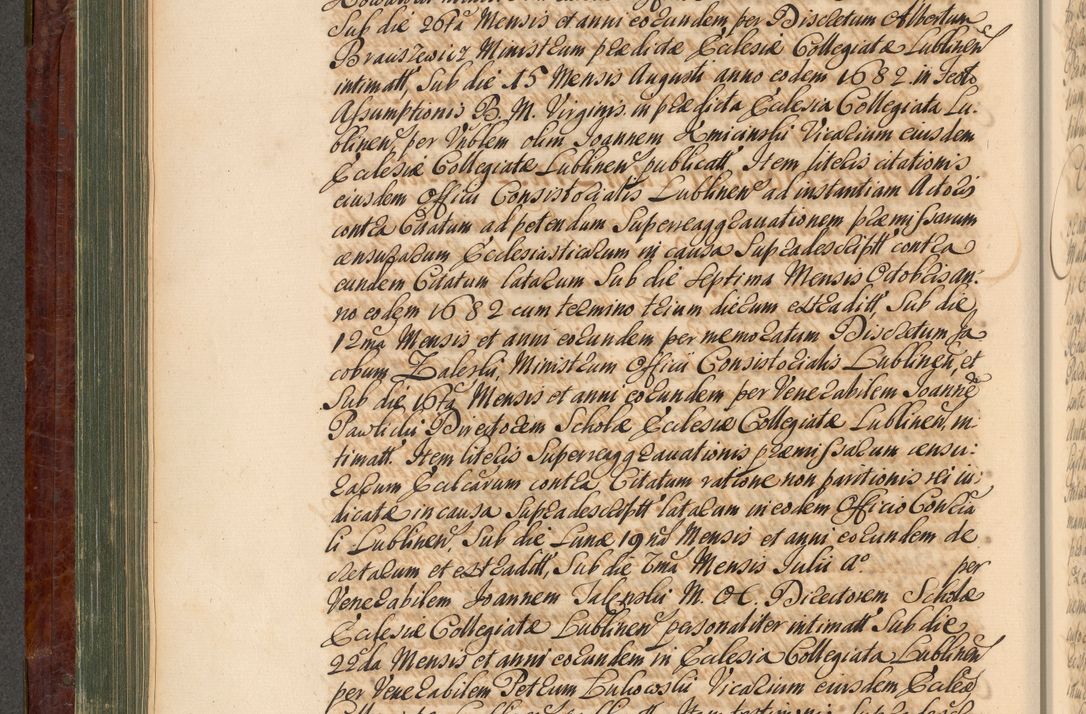 Sub die 26ta Mensis et anni eorundem per Discretum Albertum
Brauszewicz Ministrum prædictæ Ecclesiæ Collegiatæ Lublinen
intimatt, Sub die 15 Mensis Augusti anno eodem 1682 in Festo
Assumptionis B. M. Virginis in prædicta Ecclesia Collegiata Lu-
blinen, per Vnblem olim Joannem Kmicinski Vicarium eiusdem
Ecclesiæ Collegiatæ Lublinen publicatt, Item literis citationis
eiusdem Officii Consistorialis Lublinen ad instantiam Actoris
contra Citatum ad petendum Superreaggrauationem præmissarum
censurarum Ecclesiasticarum in causa Supradescriptt contra
eundem Citatum latarum Sub die septima Mensis Octobris an-
no eodem 1682 cum termino trium dierum extraditt, Sub die
12ma Mensis et anni eorundem per memoratum Discretum Ja
cobum Zaleski, Ministrum Officii Consistorialis Lublinen, et
Sub die 16ta Mensis et anni eorundem per Venerabilem Joanne
Pawlicki Directorem Scholæ Ecclesiæ Collegiatæ Lublinen, in-
timatt. Item literis Superreaggrauationis præmissarum censu-
rarum Ecclcarum contra Citatum ratione non paritionis rei iu-
dicatæ in causa Supradescriptt latarum in eodem Officio Concia
li Lublinen, Sub die Lunæ 19na Mensis et anni eorundem de
cretarum et extraditt, Sub die Ima Mensis Julii A° per
Venerabilem Joannem Zalenski M. A. Directorem Scholæ
Ecclesiæ Collegiatæ Lublinen personaliter intimatt Sub die
22da Mensis et anni eorundem in Ecclesia Collegiata Lublinen
per Venerabilem Petrum Lukowski Vicarium eiusdem Eccles